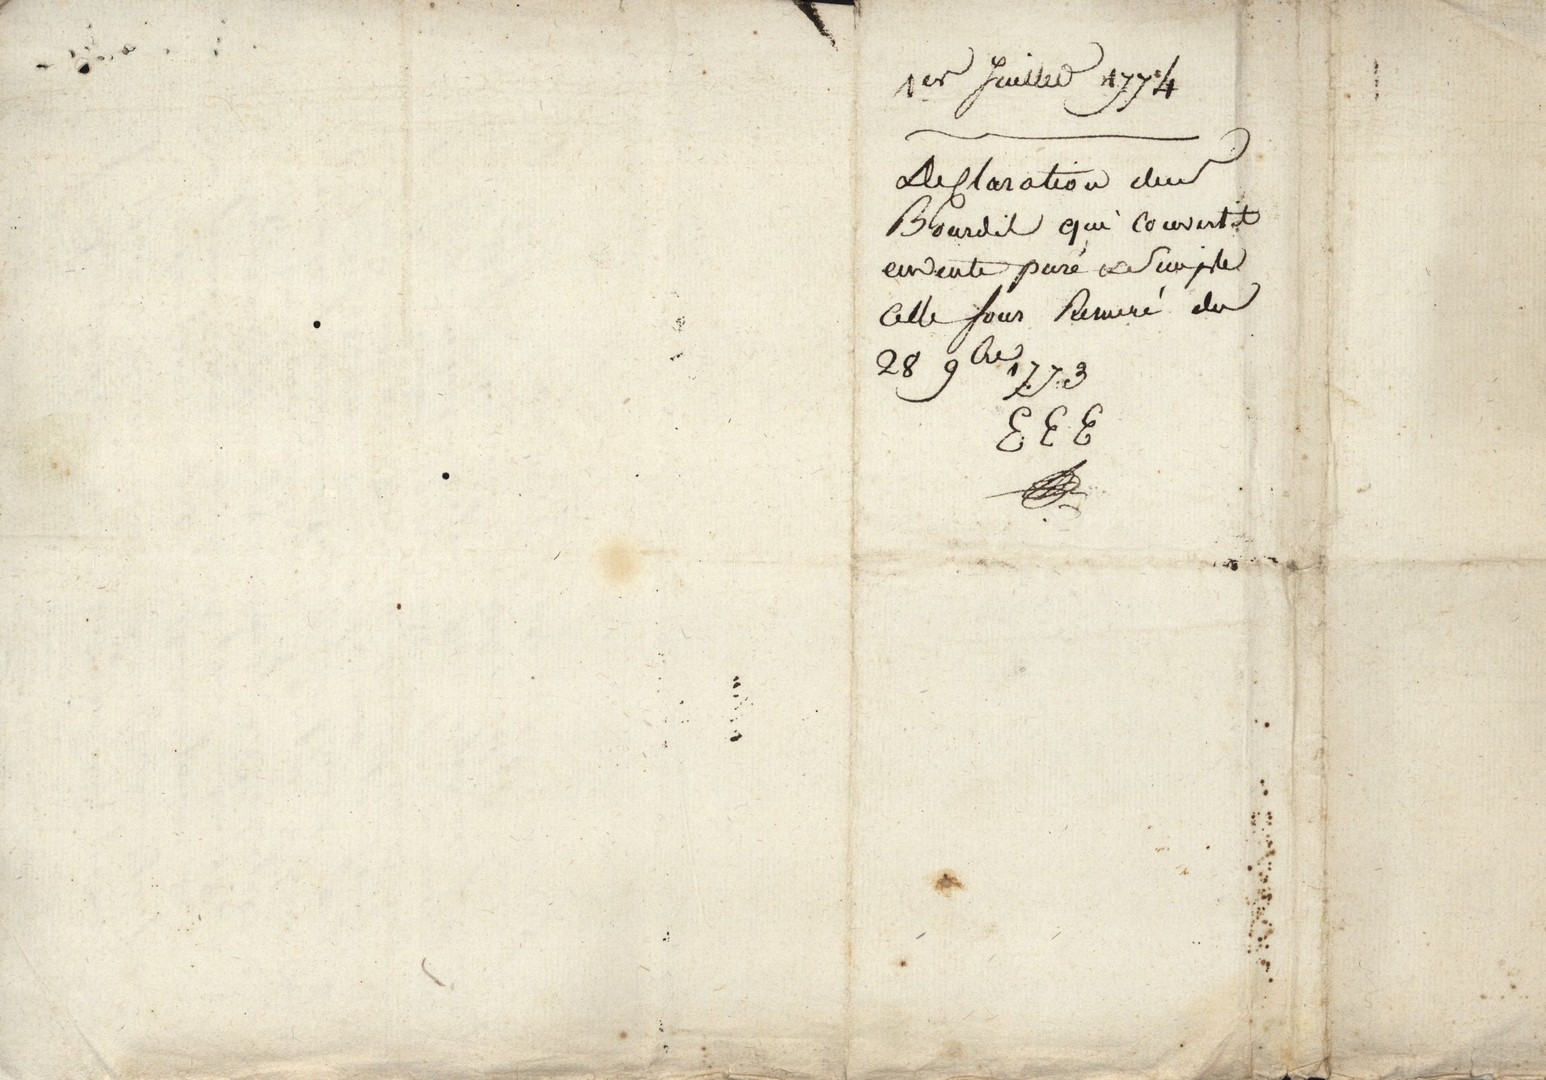 1er Juillet 1774
Declaration du
Bourdil qui convertit
en vente pure & Simple
Celle sous Remeré du
28 9bre 1773
E E E